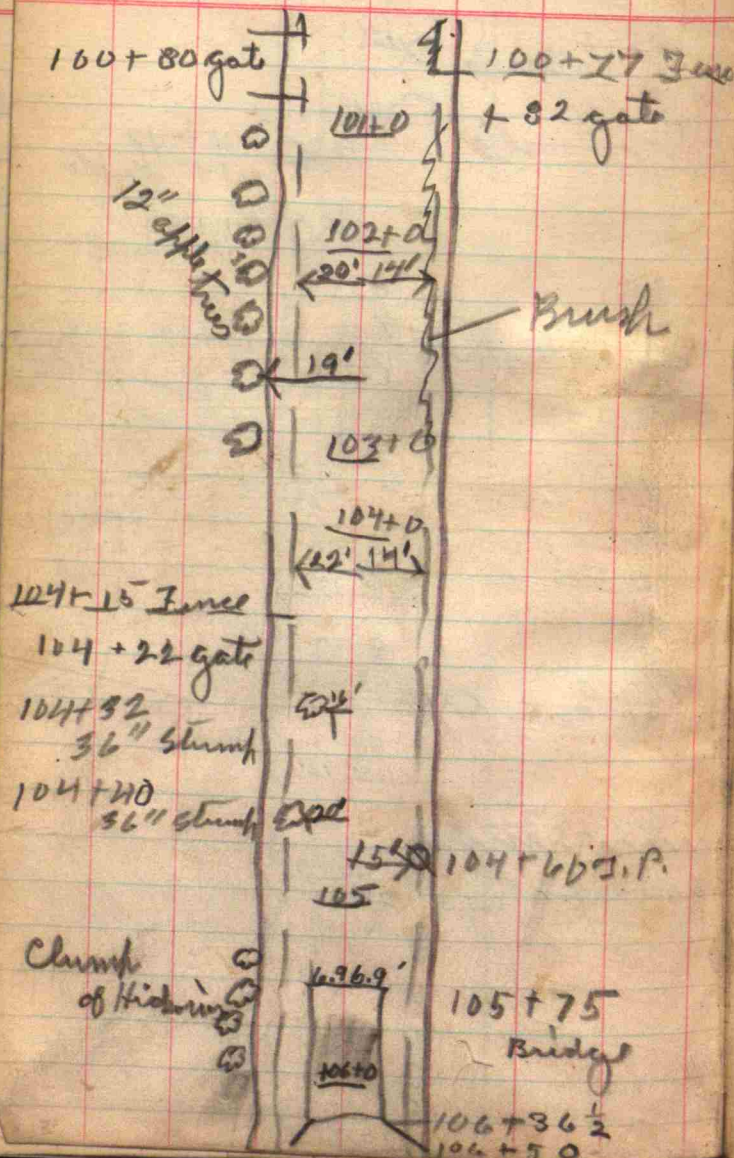 100+80 gate
100+77 Fence
+82 gate
101+0
12" apple trees
102+0
20' 14'
Brush
19'
103+0
104+0
22' 14'
104+15 Fence
104+22 gate
104+32
36" Stump
16'
104+40
36" Stump
20'
15'
104+60 T.P.
105
Clump
of Hickories
6.9 6.9'
105+75
Bridge
106+0
106+36 1/2
106+50